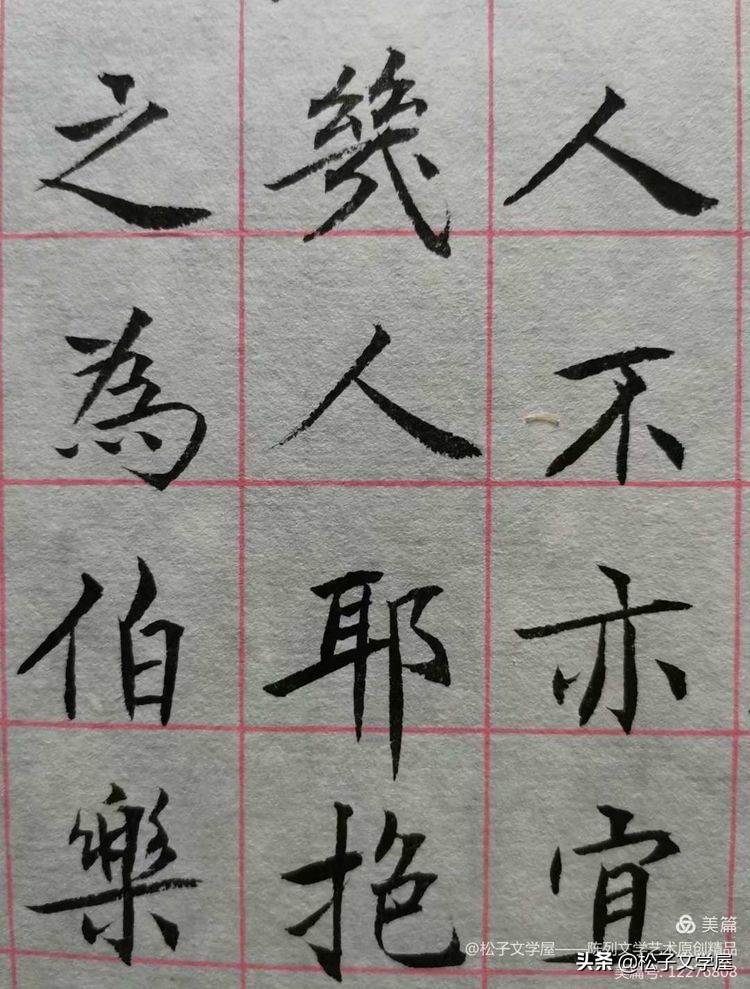 人不亦宜
幾人耶抱
之為伯樂
美篇
@松子文学屋——陈列文学艺术原创精品
美篇号: 12276808
头条 @松子文学屋